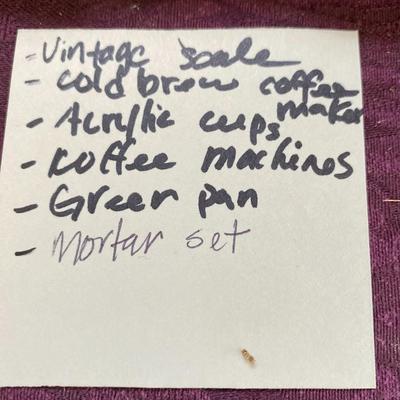 - Vintage scale
- cold brew coffee
maker
- Acrylic cups
- coffee machines
- Green pan
- Mortar set